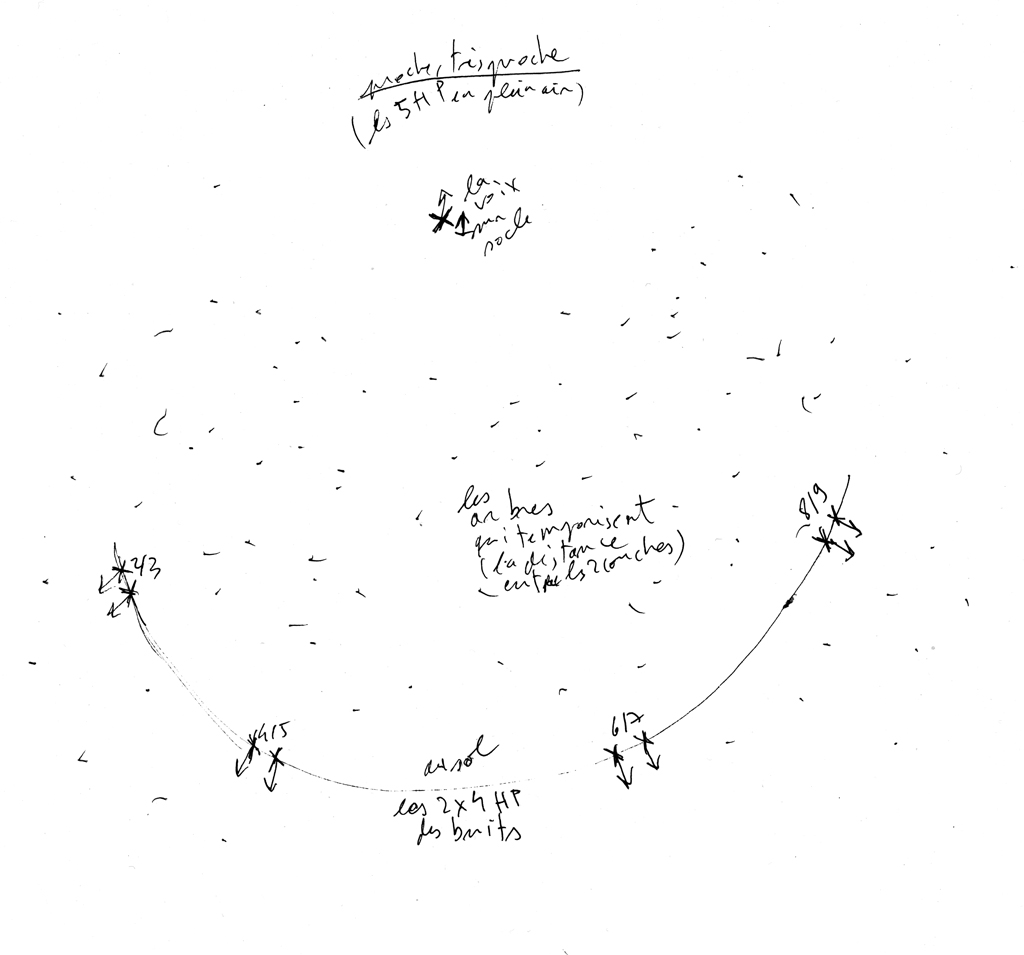 proche, très proche
(les 5 HP en plein air)
la
voix
sur
socle
les
arbres
qui temporisent
(la distance
entre les 2 couches)
8/9
2/3
4/5
6/7
au sol
les 2x4 HP
des bruits